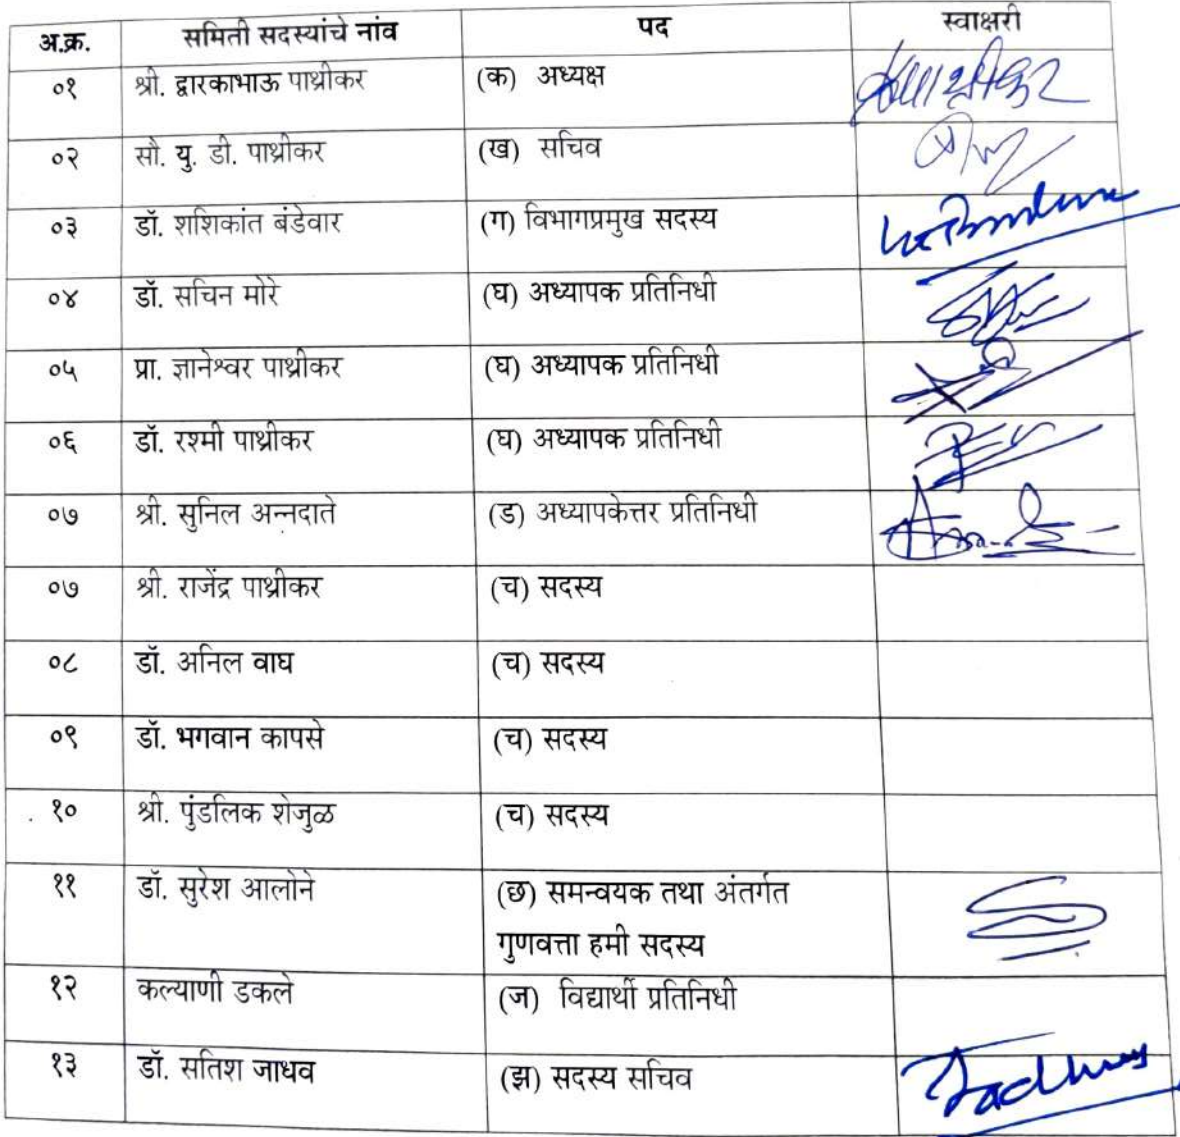 अ.क्र. समिती सदस्यांचे नांव पद स्वाक्षरी
०१ श्री. द्वारकाभाऊ पाथ्रीकर (क) अध्यक्ष
०२ सौ. यु. डी. पाथ्रीकर (ख) सचिव
०३ डॉ. शशिकांत बंडेवार (ग) विभागप्रमुख सदस्य
०४ डॉ. सचिन मोरे (घ) अध्यापक प्रतिनिधी
०५ प्रा. ज्ञानेश्वर पाथ्रीकर (घ) अध्यापक प्रतिनिधी
०६ डॉ. रश्मी पाथ्रीकर (घ) अध्यापक प्रतिनिधी
०७ श्री. सुनिल अन्नदाते (ड) अध्यापकेत्तर प्रतिनिधी
०७ श्री. राजेंद्र पाथ्रीकर (च) सदस्य
०८ डॉ. अनिल वाघ (च) सदस्य
०९ डॉ. भगवान कापसे (च) सदस्य
१० श्री. पुंडलिक शेजुळ (च) सदस्य
११ डॉ. सुरेश आलोने (छ) समन्वयक तथा अंतर्गत
गुणवत्ता हमी सदस्य
१२ कल्याणी डकले (ज) विद्यार्थी प्रतिनिधी
१३ डॉ. सतिश जाधव (झ) सदस्य सचिव Jadhav